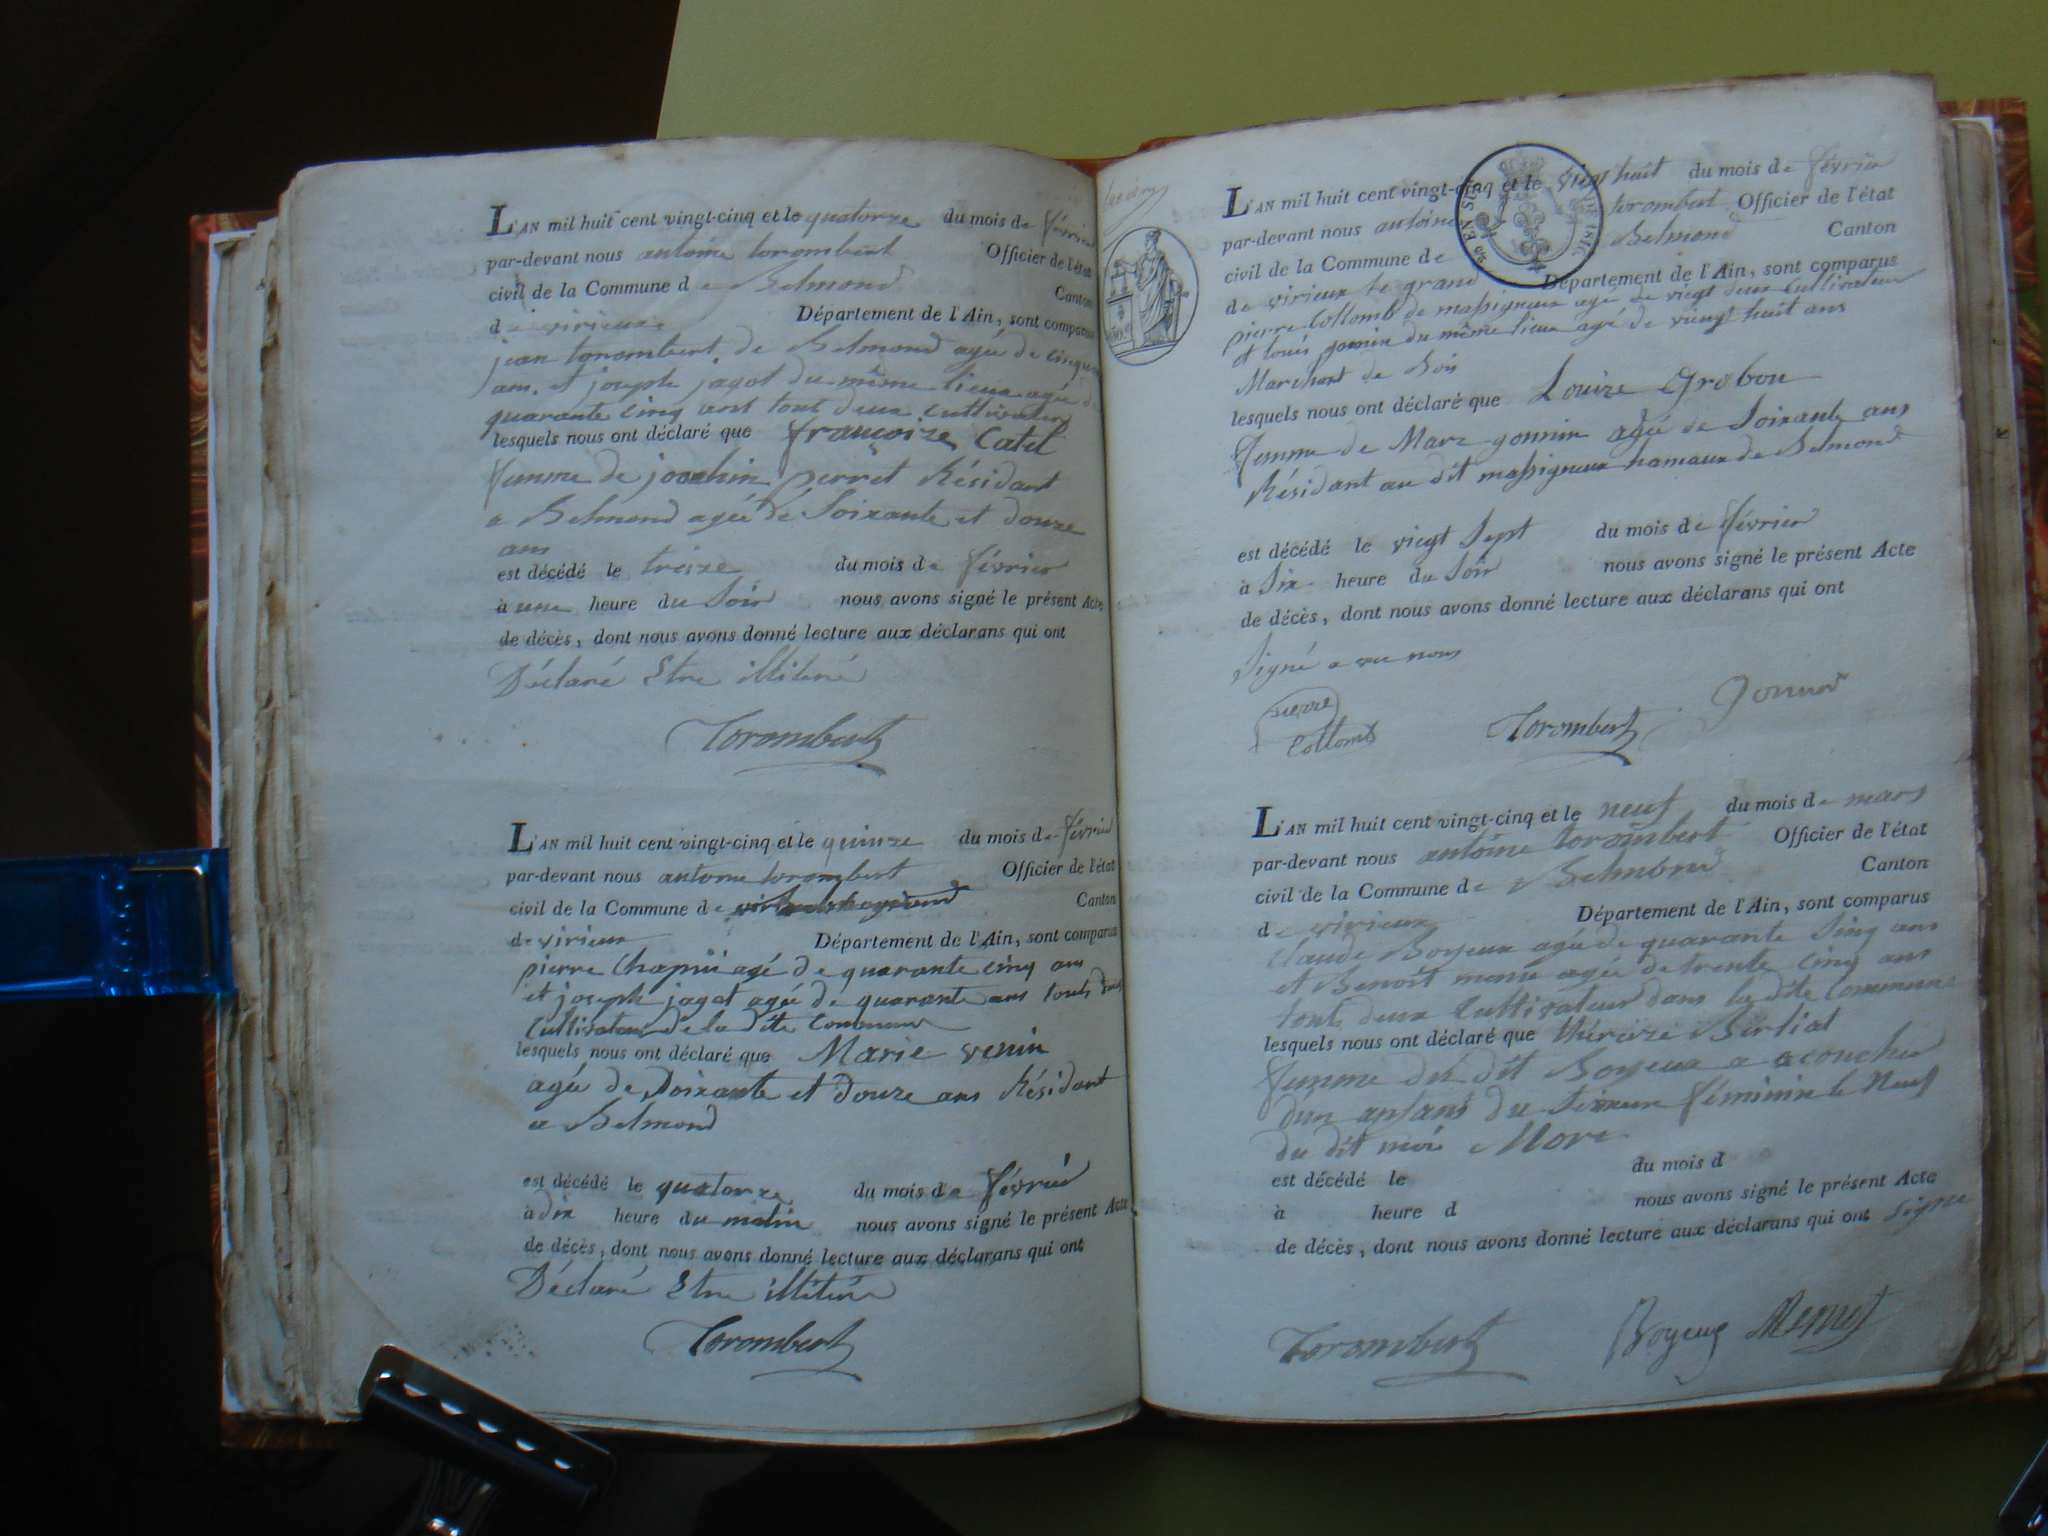 L'AN mil huit cent vingt-cinq et le quatorze du mois de février
par-devant nous antoine torombert Officier de l'état
civil de la Commune de Belmond Canton
de virieux Département de l'Ain, sont comparus
jean torombert de Belmond agée de cinquante
ans et joseph jagot du même lieux agée de
quarante cinq ans tout deux cultivateur
lesquels nous ont déclaré que françoize Catel
femme de jochin perret Résidant
a Belmond agée de Soixante et douze
ans
est décédé le treize du mois de février
à une heure du Soir nous avons signé le présent Acte
de décès, dont nous avons donné lecture aux déclarans qui ont
Déclaré Etre illitéré
Torombert
L'AN mil huit cent vingt-cinq et le quinze du mois de février
par-devant nous antoine torombert Officier de l'état
civil de la Commune de Canton
de virieux Département de l'Ain, sont comparus
pierre Chapui agé de quarante cinq ans
et joseph jagot agée de quarante ans touts deux
Cultivateur de la dite Commune
lesquels nous ont déclaré que Marie venin
agée de Soixante et douze ans Résidant
a Belmond
est décédé le quatorze du mois de févrié
à dix heure du matin nous avons signé le présent Acte
de décès, dont nous avons donné lecture aux déclarans qui ont
Déclaré Etre illitéré
Torombert
L'AN mil huit cent vingt-cinq et le vingt huit du mois de février
par-devant nous antoine torombert Officier de l'état
civil de la Commune de Belmond Canton
de virieux le grand Département de l'Ain, sont comparus
pierre Collomb de massigneux agé de vingt deux Cultivateur
et louis gonin du même lieux agé de vingt huit ans
Marchant de Bois
lesquels nous ont déclaré que Louize Grobon
femme de Marc gonnin agée de Soixante ans
Résidant au dit massigneux hamaux de Belmond
est décédé le vingt Sept du mois de février
à Six heure du Soir nous avons signé le présent Acte
de décès, dont nous avons donné lecture aux déclarans qui ont
Signé avec nous
pierre
Collomb Torombert
L'AN mil huit cent vingt-cinq et le neuf du mois de mars
par-devant nous antoine torombert Officier de l'état
civil de la Commune de Belmond Canton
de virieux Département de l'Ain, sont comparus
Claude Boyeux agée de quarante Sinq ans
et Benoît agée de trente cinq ans
tout deux Cultivateur dans la dite Commune
lesquels nous ont déclaré que thérèze Berliat
femme du dit Boyeux a acouchée
dun anfans du Sexe féminin le Neuf
du dit moi Mort
est décédé le du mois d
à heure d nous avons signé le présent Acte
de décès, dont nous avons donné lecture aux déclarans qui ont Signé
Torombert Boyeux